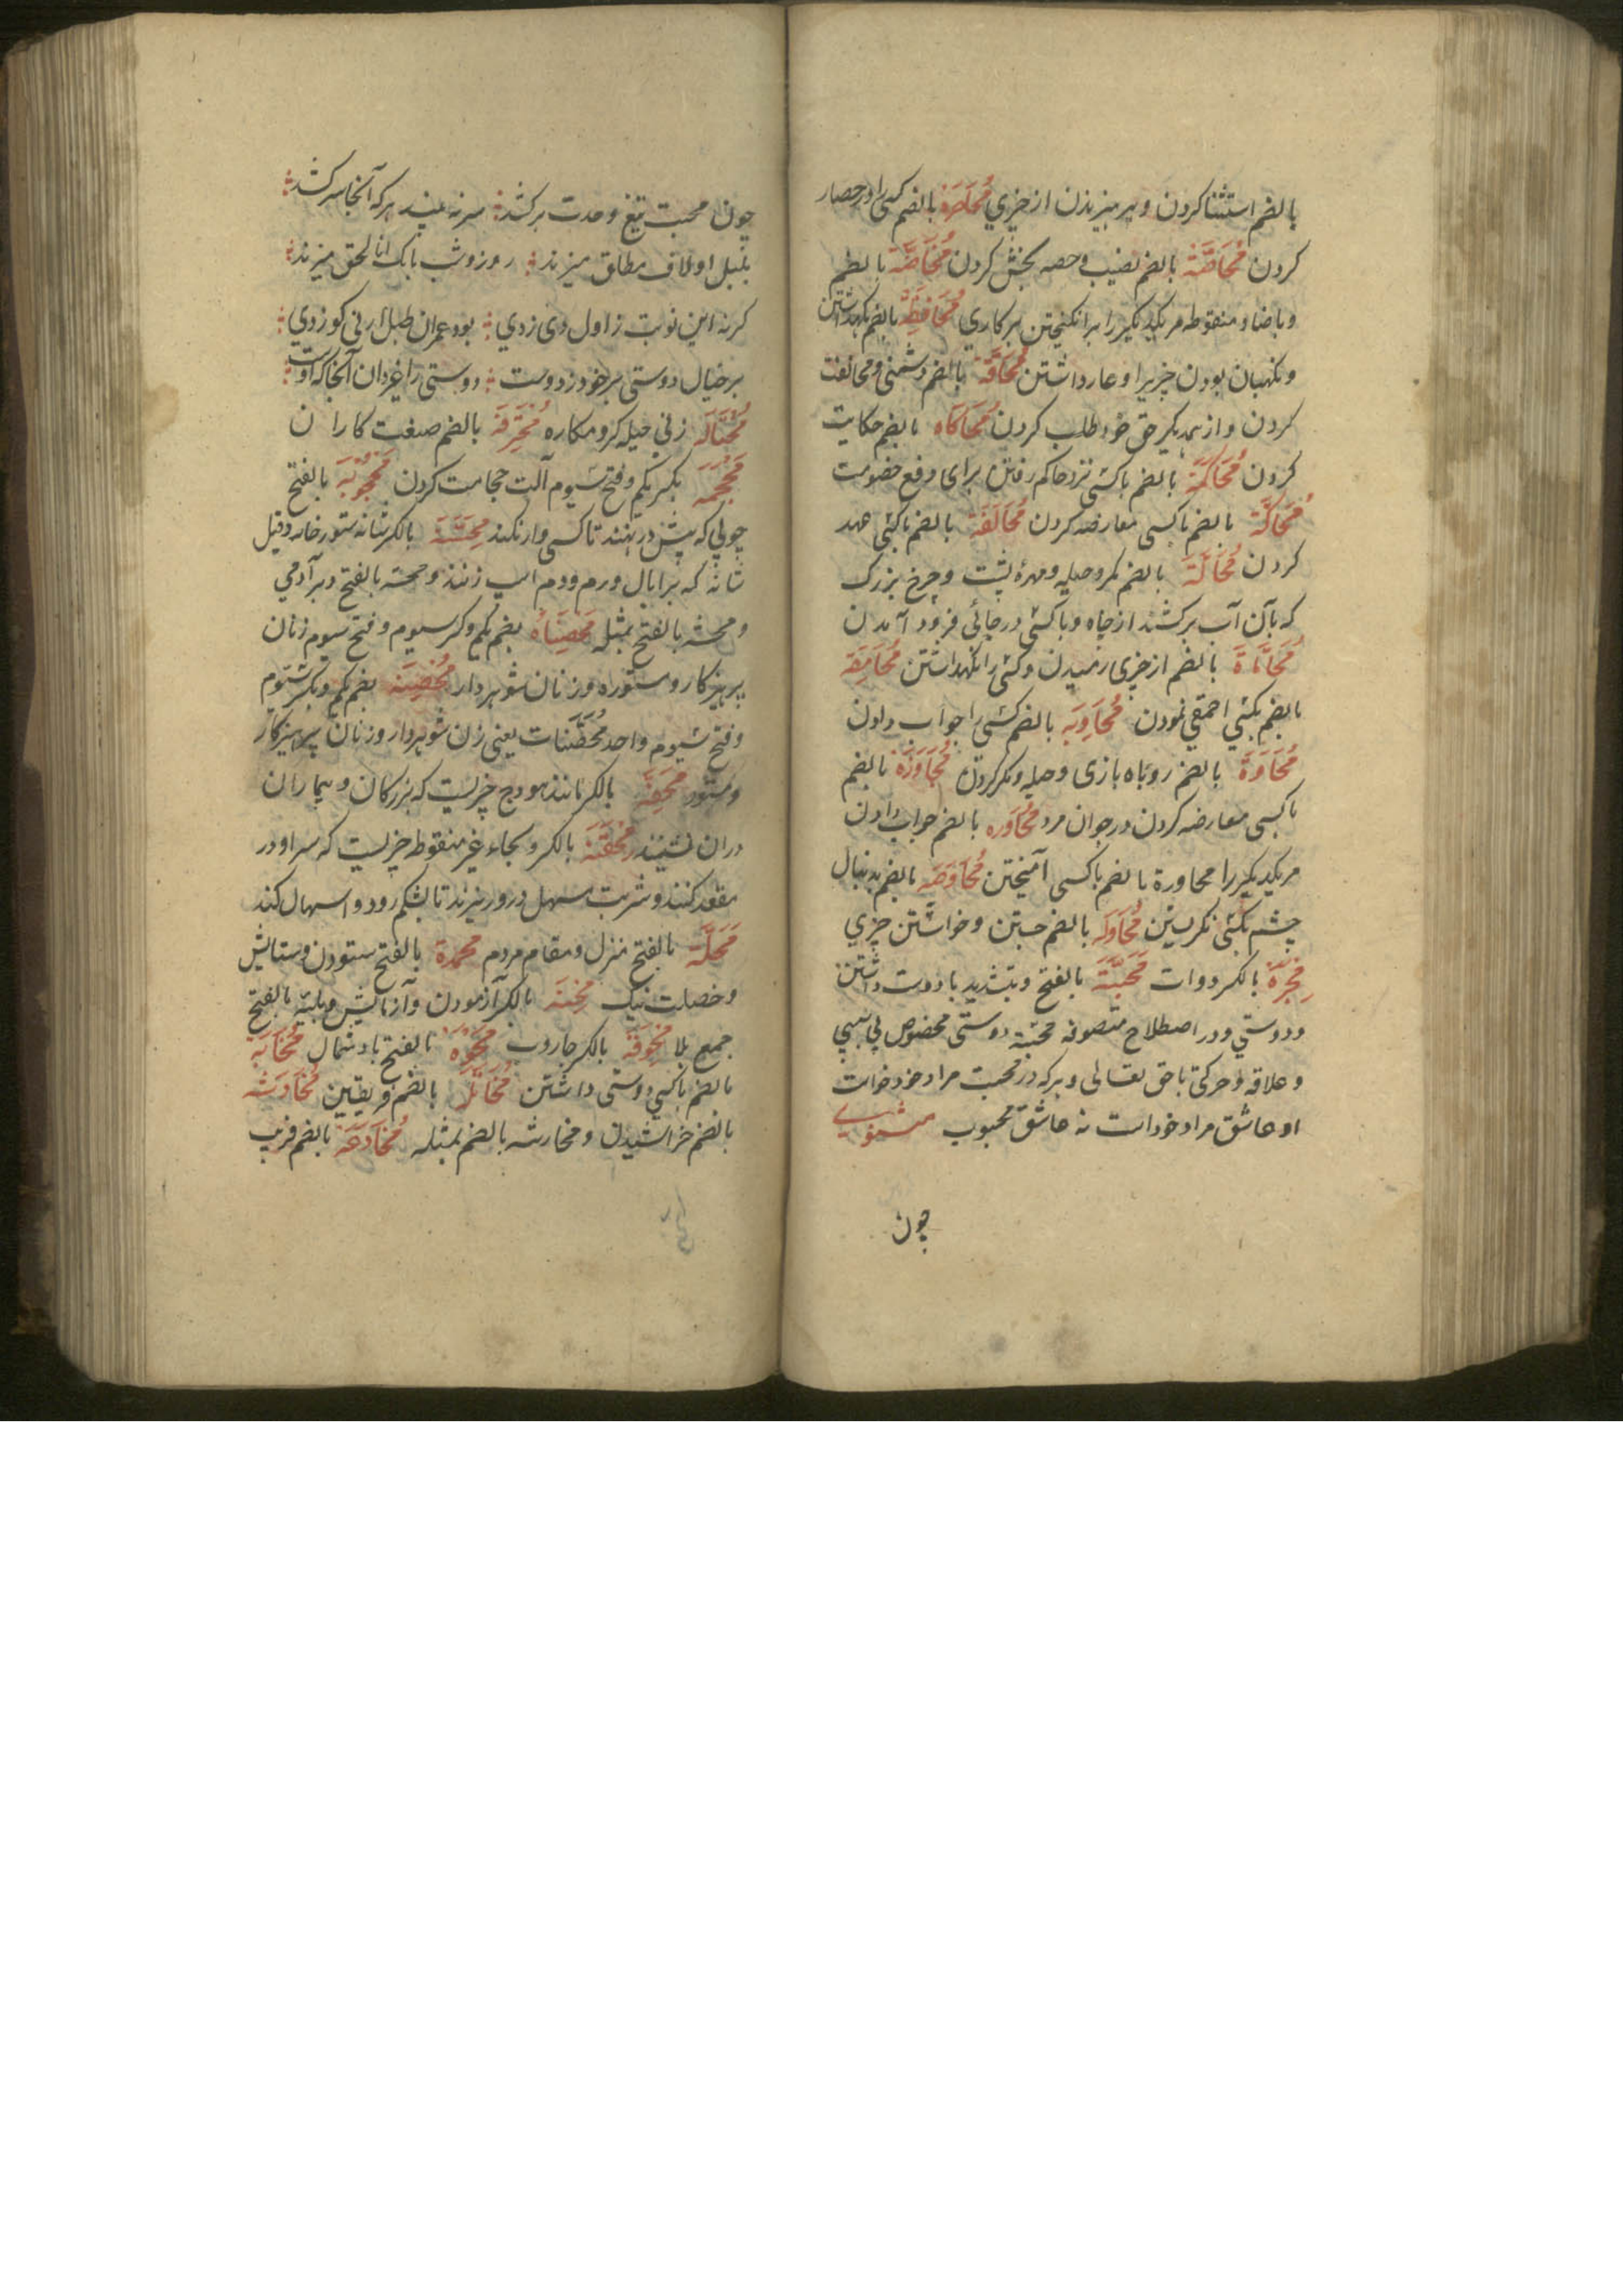 بالضم استثنا کردن و پرهیزیدن از چیزي مُحَاصَرَة بالضم کسی را در حصار
کردن مُحَاصَّة بالضم نصیب و حصه بخش کردن مُحَاضَّة بالضم
و با ضاد منقوطه مر یکدیگر را برانکیختن بر کاري مُحَافَظَة بالضم نکهداشتن
و نکهبان بودن چیزیرا و عار داشتن مُحَاقَّة بالضم دشمنی و مخالفت
کردن و از همدیکر حق خود طلب کردن مُحَاکَاه بالضم حکایت
کردن مُحَاکَمَة بالضم با کسی نزد حاکم رفتن برای دفع خصومت
مُحَاکَّة بالضم با کسی معارضه کردن مُحَالَفَة بالضم با کسی عهد
کردن مُحَالَة بالضم مکر و حیله و مهرهٔ پشت و چرخ بزرک
که بآن آب برکشند از چاه و با کسی در جائی فرود آمدن
مُحَامَاة بالضم از چیزی رمیدن و کسی را نکهداشتن مُحَامِقَة
بالضم بکسی احمقی نمودن مُحَاوِبَه بالضم کسی را جواب دادن
مُحَاوَة بالضم روباه بازی و حیله و مکر کردن مُحَاوَزَة بالضم
با کسی معارضه کردن در جوان مرد مُحَاوَره بالضم جواب دادن
مر یکدیکر را محاورة بالضم با کسی آمیختن مُحَاوَصَه بالضم بدنبال
چشم بکسی نکریستن مُحَاوَلَه بالضم جستن و خواستن چیزي
مِحْبَرَة بالکسر دوات مَحَبَّة بالفتح و بتشدید با دوست داشتن
و دوستي و در اصطلاح متصوفه محبّة دوستی مخصوص بي سببي
و علاقه و حرکتی با حق تعالی و هرکه در محبت مراد خود خواست
او عاشق مراد خود است نه عاشق محبوب مثنوي
چون
چون محبت تیغ وحدت برکشد سر نه بیند هرکه آنجا سر کشد
بلبل او لاف مطلق میزند روز و شب بانک انا لحق میزند
کرنه این نوبت ز اول دی زدي بود عمران طبل ارنی کو زدي
بر خیال دوستی بر خود ز دوست دوستی را غیر دان آنجا که اوست
مُحْتَالَه زنی حیله کر و مکاره مُحْتَرِفَة بالضم صنعت کاران
مِحْجَمَه بکسر یکم و فتح سیوم آلت حجامت کردن مَحْجُوبَة بالفتح
چوبي که پیش در نهند تا کسی وا نکند مِحَسَّة بالکسر شانه ستور خانه و قیل
شانه که بر ابال و رم و دم اسپ زنند و محسّه بالفتح دبر آدمی
و محشه بالفتح بمثله مُحْصِنَاة بضم یکم و کسر سیوم و فتح سیوم زنان
پرهیزکار و مستوره و زنان شوهر دار مُحْصِنَة بضم یکم و بکسر سیوم
و فتح سیوم واحد مُحْصَنَات یعنی زن شوهر دار و زنان پرهیزکار
و مستور مِحَفَّة بالکسر مانند هودج چیزیست که بزرکان و بیماران
دران نشینند مِحْقَنَة بالکسر و بحاء غیر منقوطه چیزیست که سر او در
مقعد کنند و شربت مسهل در و ریزند تا بشکم رود و اسهال کند
مَحَلَّة بالفتح منزل و مقام مردم محمدة بالفتح ستودن و ستایش
و خصلت نیک مِحْنَة بالکسر آزمودن و آزمایش و بلیة بالفتح
جمع بلا مِحْوَقَة بالکسر جاروب مَحْوَه بالفتح باد شمال مُخَابَّة
بالضم با کسی دوستی داشتن بالضم فریفتن مُخَادَشَه
بالضم خراشیدن و مخارشه بالضم بمثله مُخَادَعَة بالضم فریب